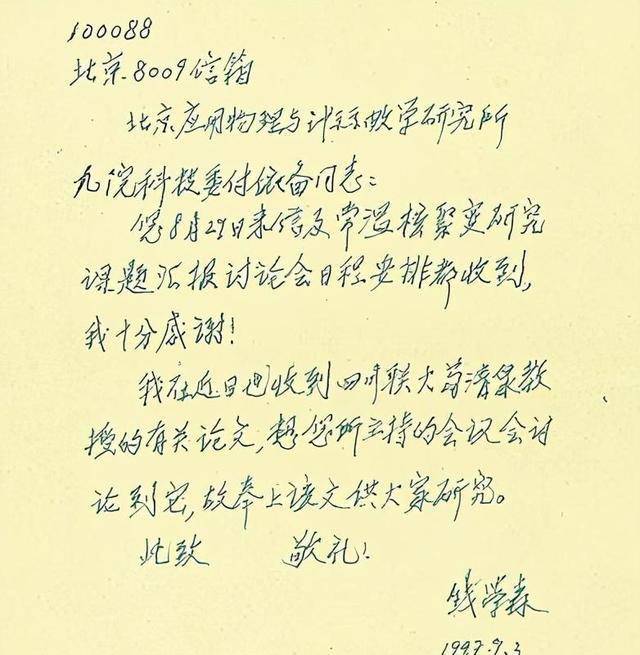 100088
北京.8009信箱
北京应用物理与计算数学研究所
九院科技委付依备同志:
您8月29日来信及常温核聚变研究
课题汇报讨论会日程安排都收到,
我十分感谢!
我在近日也收到四川联大苟清泉教
授的有关论文,想您所主持的会议会讨
论到它,故奉上该文供大家研究。
此致 敬礼!
钱学森
1997.9.3